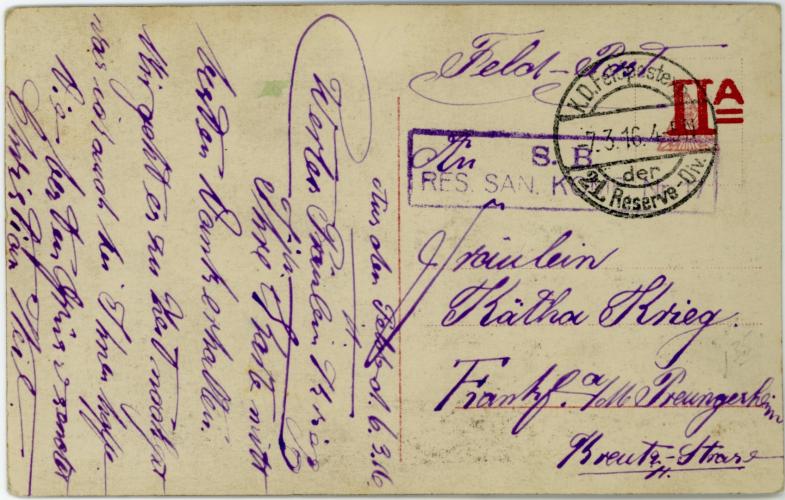 Feld-Post
K.D. Feldpostexp.
7.3.16. 4-5 N
der
21. Reserve-Div.
II A
S. B.
RES. SAN. K
An
Fräulein
Kätha Krieg.
Frankf. a/M. Preungesheim
Kreutz-Strase
11.
Aus den 6.3.16.
Werten Fräulein Krieg
Ihre Karte mitt
besten Dank erhalten
Mir geht es zur Zeit noch gut
was ich auch bei Ihnen hoffe
V.a. besten Grus sendet
Christian Weil.